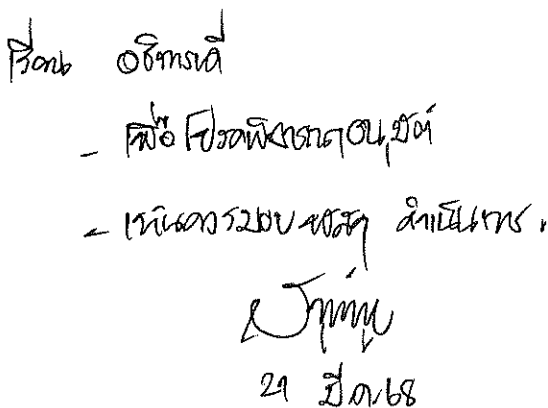 เรียน อธิการบดี
- เพื่อโปรดพิจารณาอนุมัติ
- เห็นควรมอบ พัสดุ ดำเนินการ.
21 มี.ค. 68